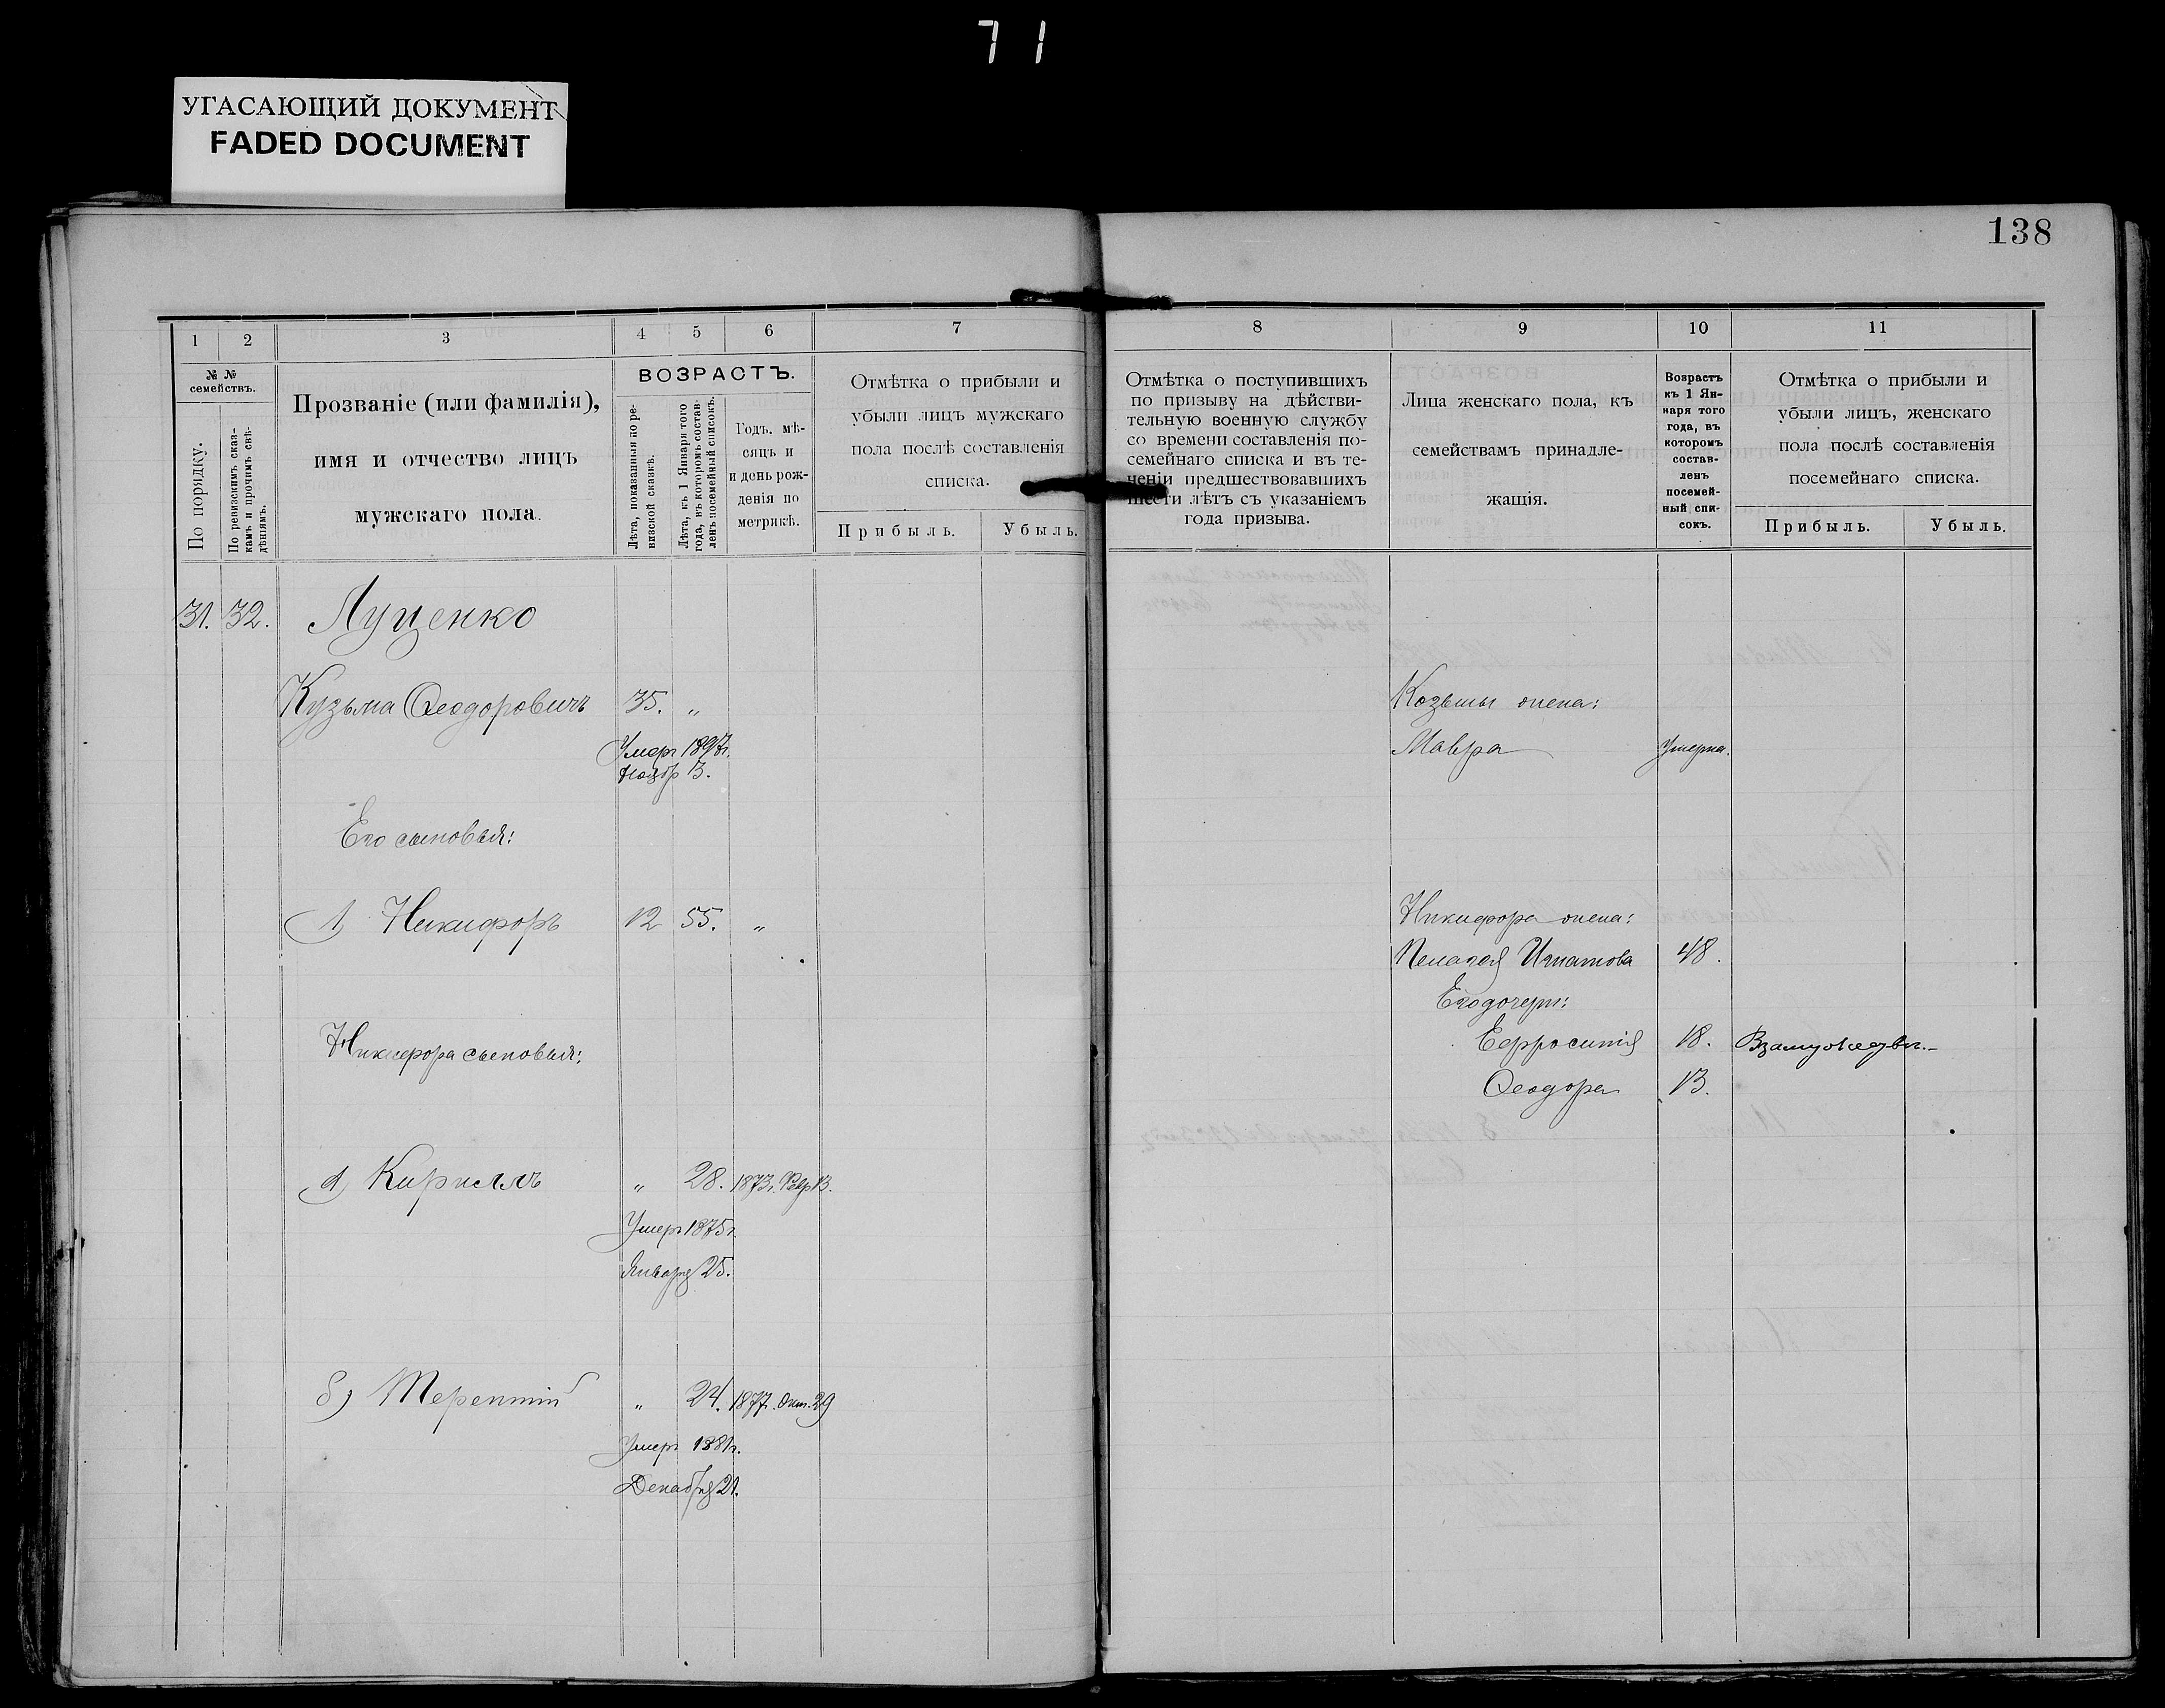 71
УГАСАЮЩИЙ ДОКУМЕНТ
FADED DOCUMENT
138
1 2 3 4 5 6 7
№ №
семействъ.
По порядку.
По ревизскимъ сказ-
камъ и прочимъ свѣ-
дѣніямъ.
Прозваніе (или фамилія),
имя и отчество лицъ
мужскаго пола.
ВОЗРАСТЪ.
Лѣта, показанныя по ре-
визской сказкѣ.
Лѣта, къ 1 Января того
года, въ которомъ состав-
ленъ посемейный списокъ.
Годъ, мѣ-
сяцъ и
и день рож-
денія по
метрикѣ.
Отмѣтка о прибыли и
убыли лицъ мужскаго
пола послѣ составленія
списка.
Прибыль. Убыль.
31. 32. Луценко
Кузьма Ѳеодоровичъ 35. „
Умеръ 1897г.
Ноябр 13.
Его сыновья:
1) Никифоръ 12 55. „
Никифора сыновья:
а) Кириллъ „ 28. 1873г. Февр 13.
Умеръ 1875г.
Января 25.
б) Терентій „ 24. 1877. Окт. 29
Умеръ 1881г.
Декабря 21.
8 9 10 11
Отмѣтка о поступившихъ
по призыву на дѣйстви-
тельную военную службу
со времени составленія по-
семейнаго списка и въ те-
ченіи предшествовавшихъ
шести лѣтъ съ указаніемъ
года призыва.
Лица женскаго пола, къ
семействамъ принадле-
жащія.
Возрастъ
къ 1 Ян-
варя того
года, въ
которомъ
состав-
ленъ
посемей-
ный спи-
сокъ.
Отмѣтка о прибыли и
убыли лицъ, женскаго
пола послѣ составленія
посемейнаго списка.
Прибыль. Убыль.
Козьмы жена:
Мавра Умерла.
Никифора жена:
Пелагея Игнатова 48.
Его дочери:
Ефросинія 18. Взамужедвъ.-
Ѳеодора 13.